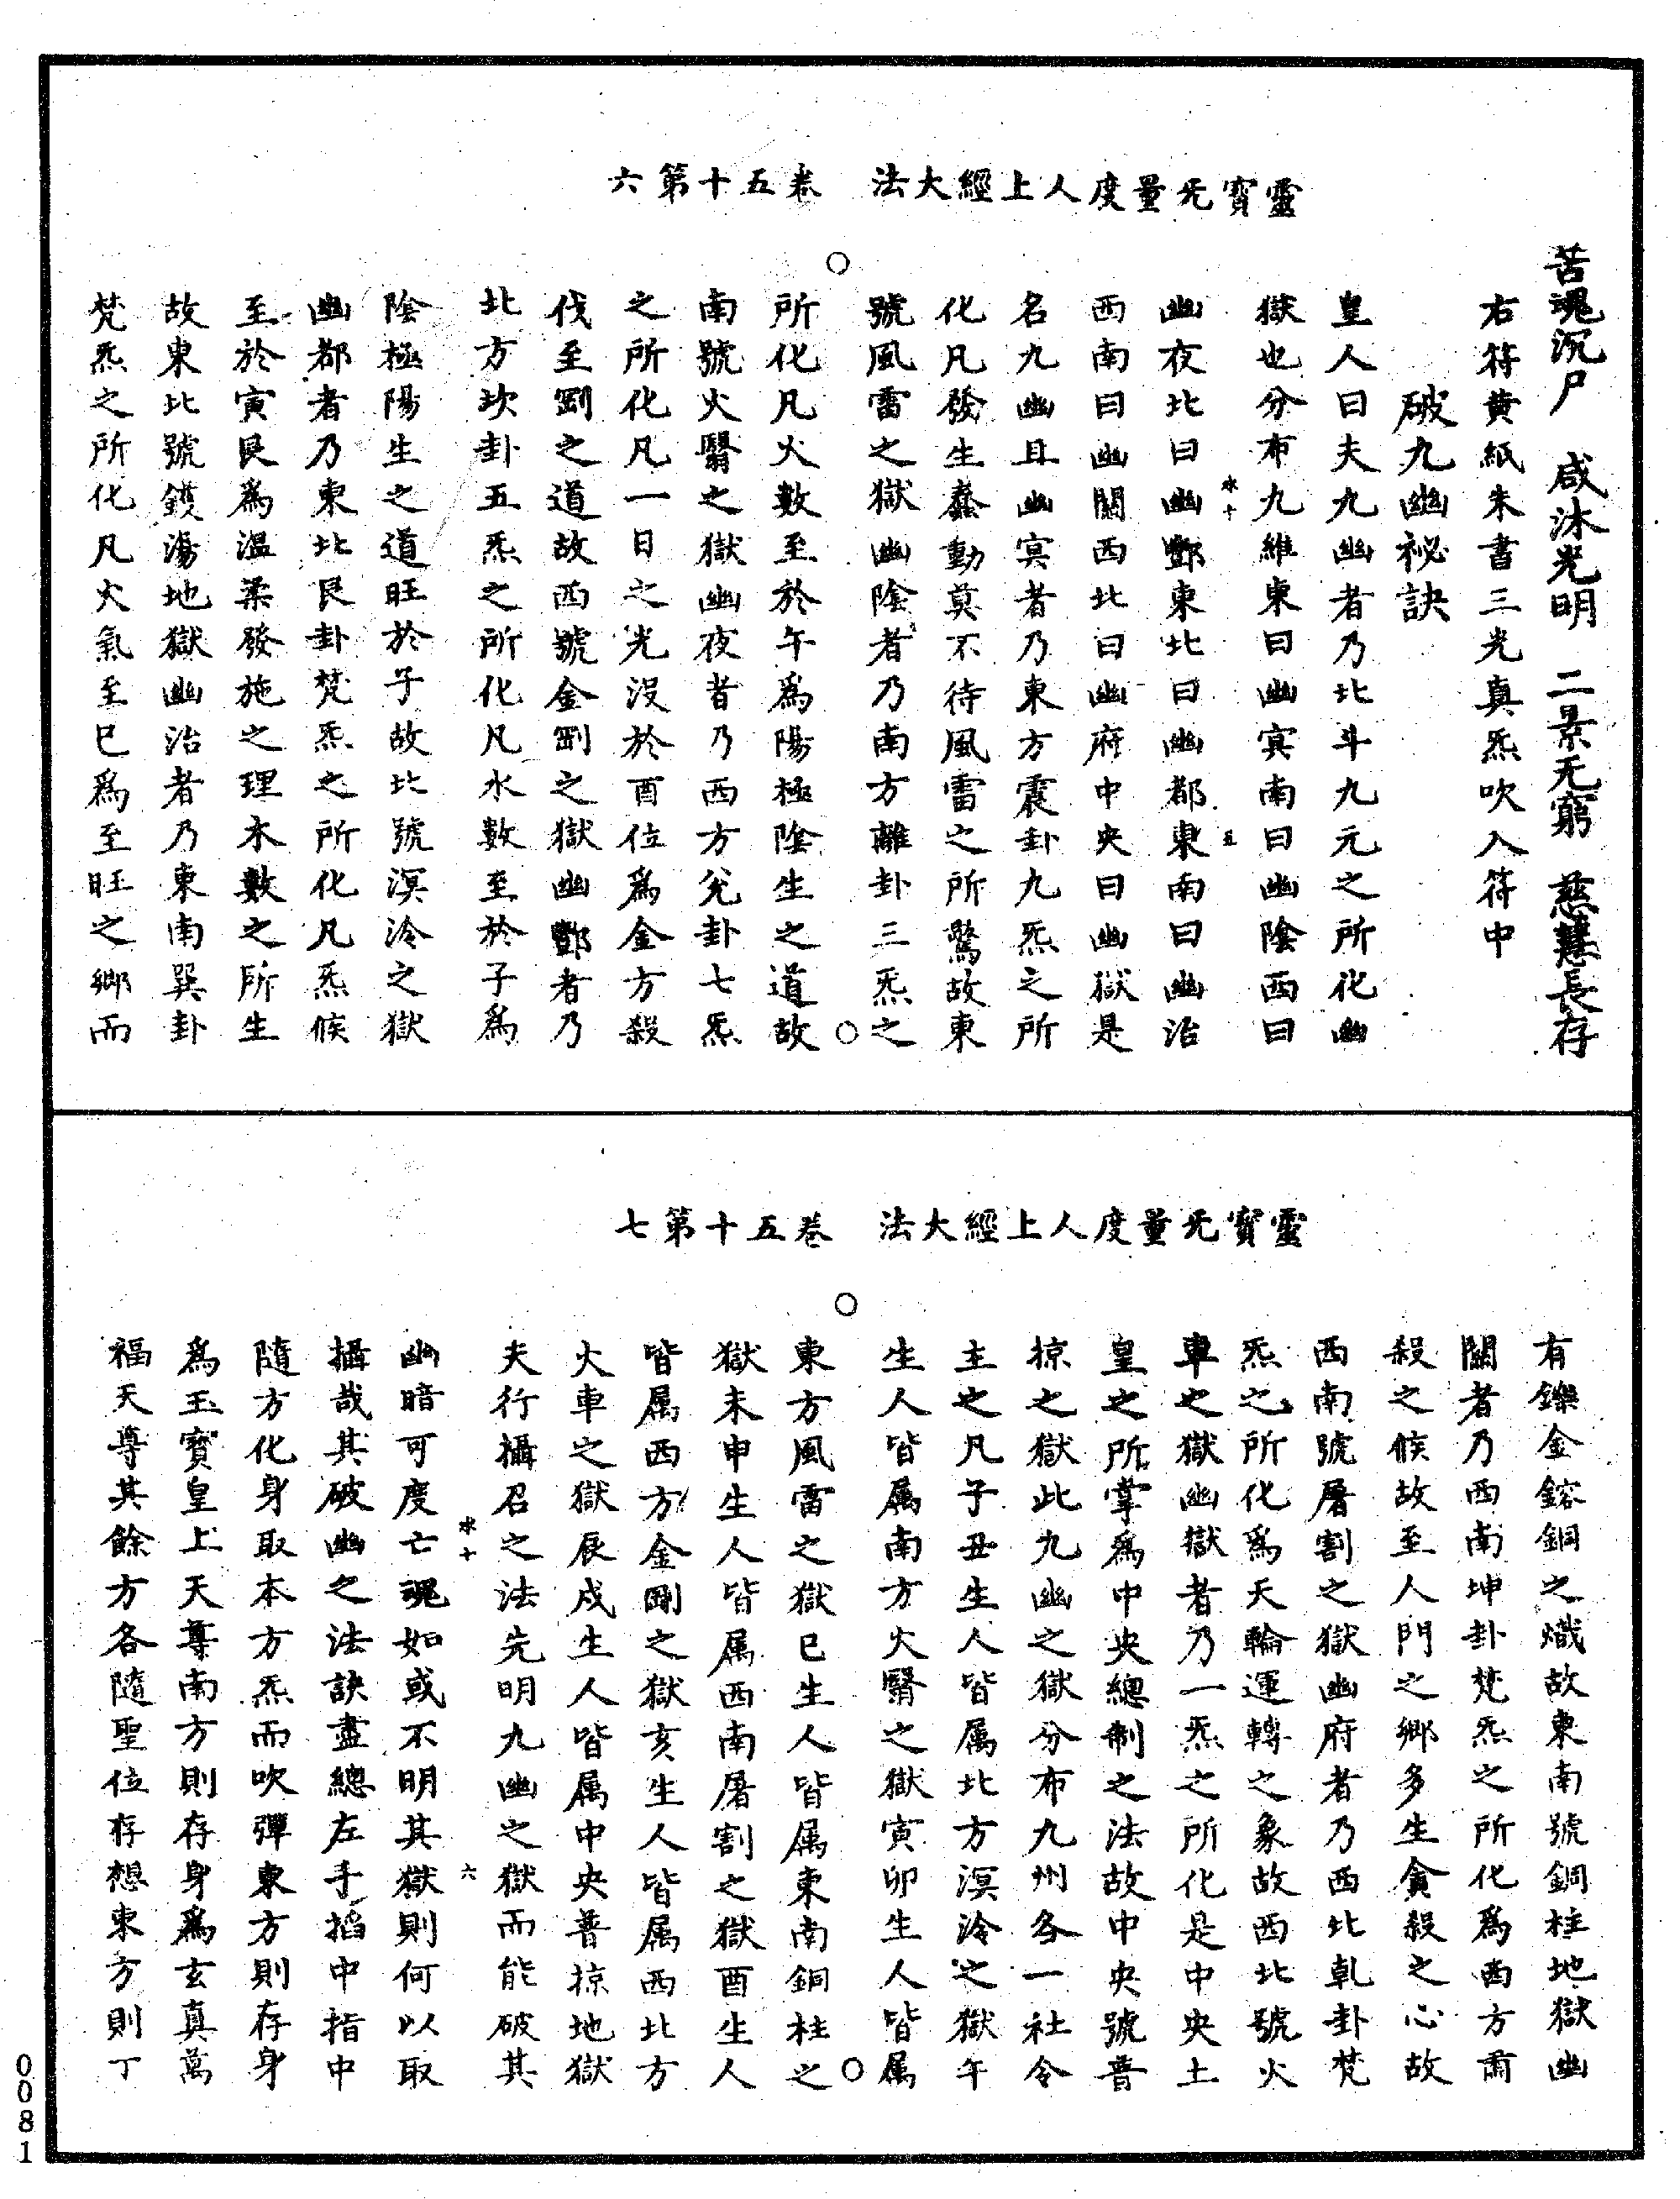 靈寳无量度人上經大法　卷五十第六
苦魂沉尸　咸沐光明　二景无窮　慈慧長存
右符黄紙朱書三光真炁吹入符中
破九幽祕訣
皇人曰夫九幽者乃北斗九元之所化幽
獄也分布九維東曰幽冥南曰幽陰西曰
水十　五
幽夜北曰幽酆東北曰幽都東南曰幽治
西南曰幽關西北曰幽府中央曰幽獄是
名九幽且幽冥者乃東方震卦九炁之所
化凡發生蠢動莫不待風雷之所驚故東
號風雷之獄幽陰者乃南方離卦三炁之
所化凡火數至於午爲陽極陰生之道故
南號火翳之獄幽夜者乃西方兊卦七炁
之所化凡一日之光没於酉位爲金方殺
伐至剛之道故西號金剛之獄幽酆者乃
北方坎卦五炁之所化凡水數至於子爲
陰極陽生之道旺於子故北號溟泠之獄
幽都者乃東北艮卦梵炁之所化凡炁候
至於寅艮爲溫柔發施之理木數之所生
故東北號鑊湯地獄幽治者乃東南巽卦
梵炁之所化凡火氣至巳爲至旺之鄉而
靈寳无量度人上經大法　卷五十第七
有鑠金鎔銅之熾故東南號銅柱地獄幽
關者乃西南坤卦梵炁之所化爲西方肅
殺之候故至人門之鄉多生貪殺之心故
西南號屠割之獄幽府者乃西北乹卦梵
炁之所化爲天輪運轉之象故西北號火
車之獄幽獄者乃一炁之所化是中央土
皇之所掌爲中央總制之法故中央號普
掠之獄此九幽之獄分布九州各一社令
主之凡子丑生人皆属北方溟泠之獄午
生人皆属南方火翳之獄寅卯生人皆属
東方風雷之獄巳生人皆属東南銅柱之
獄未申生人皆属西南屠割之獄酉生人
皆属西方金剛之獄亥生人皆属西北方
火車之獄辰戍生人皆属中央普掠地獄
夫行攝召之法先明九幽之獄而能破其
水十　六
幽暗可度亡魂如或不明其獄則何以取
攝哉其破幽之法訣盡總左手掐中指中
隨方化身取本方炁而吹彈東方則存身
爲玉寳皇上天尊南方則存身爲玄真萬
福天尊其餘方各隨聖位存想東方則丁
0081